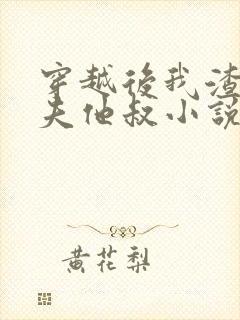 穿越後我渣
夫他叔小說
黄花梨